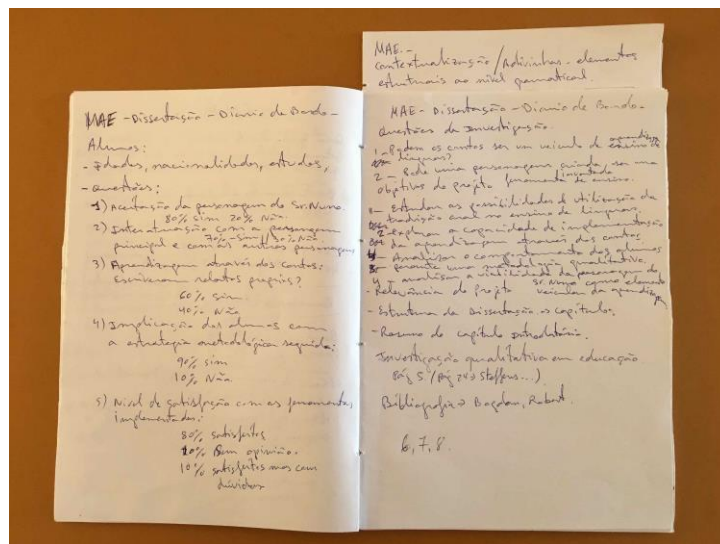 MAE -
contextualização / Adivinhas - elementos
estruturais ao nível gramatical.
MAE - Dissertação - Diario de Bordo -
Alunos:
- Idades, nacionalidades, estudos,
- Questões:
1) Aceitação da personagem do Sr. Nuno.
80% sim 20% Não.
2) Interatuação com a personagem
principal e com as outras personagens
70% sim // 30% Não
3) Aprendizagem através dos contos:
Escreveram relatos próprios?
60% sim
40% Não
4) Implicação dos alunos com
a estratégia metodológica seguida:
90% sim
10% Não
5) Nivel de satisfação com as ferramentas
implementadas:
80% satisfeitos
10% Sem opinião.
10% satisfeitos mas com
dúvidas
MAE - Dissertação - Diario de Bordo -
Questões da Investigação
1 - Podem os contos ser um veículo de aprendizagem
ensino de línguas?
2 - Pode uma personagem criada, inventada ser uma
ferramenta de ensino.
Objetivos do projeto
1 - Estudar as possibilidades de utilização da
tradição oral no ensino de línguas.
2 explorar a capacidade de implementação
da aprendizagem através dos contos
3 - Analisar o comportamento dos alunos
perante uma qualitativa.
4 - analisar a viabilidade da personagem do
Sr. Nuno como elemento
veicular da aprendizagem
- Relevância do projeto
- Estrutura da Dissertação → capítulos.
- Resumo do capítulo introdutório.
Investigação qualitativa em educação
Pág 5 / (pág 24 → Steffens...)
Bibliografia → Bogdan, Robert.
6, 7, 8.